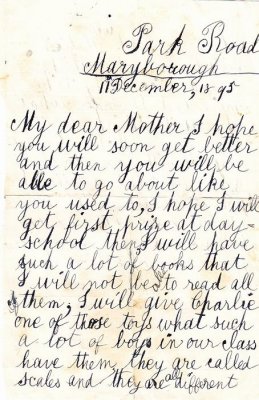 Park Road
Maryborough
11 December, 1895
My dear Mother I hope
you will soon get better
and then you will be
able to go about like
you used to, I hope I will
get first prize at day-
school then I will have
such a lot of books that
I will not be to read all
them, I will give Charlie
one of those toys what such
a lot of boys in our class
have them, they are called
scales and they are all different